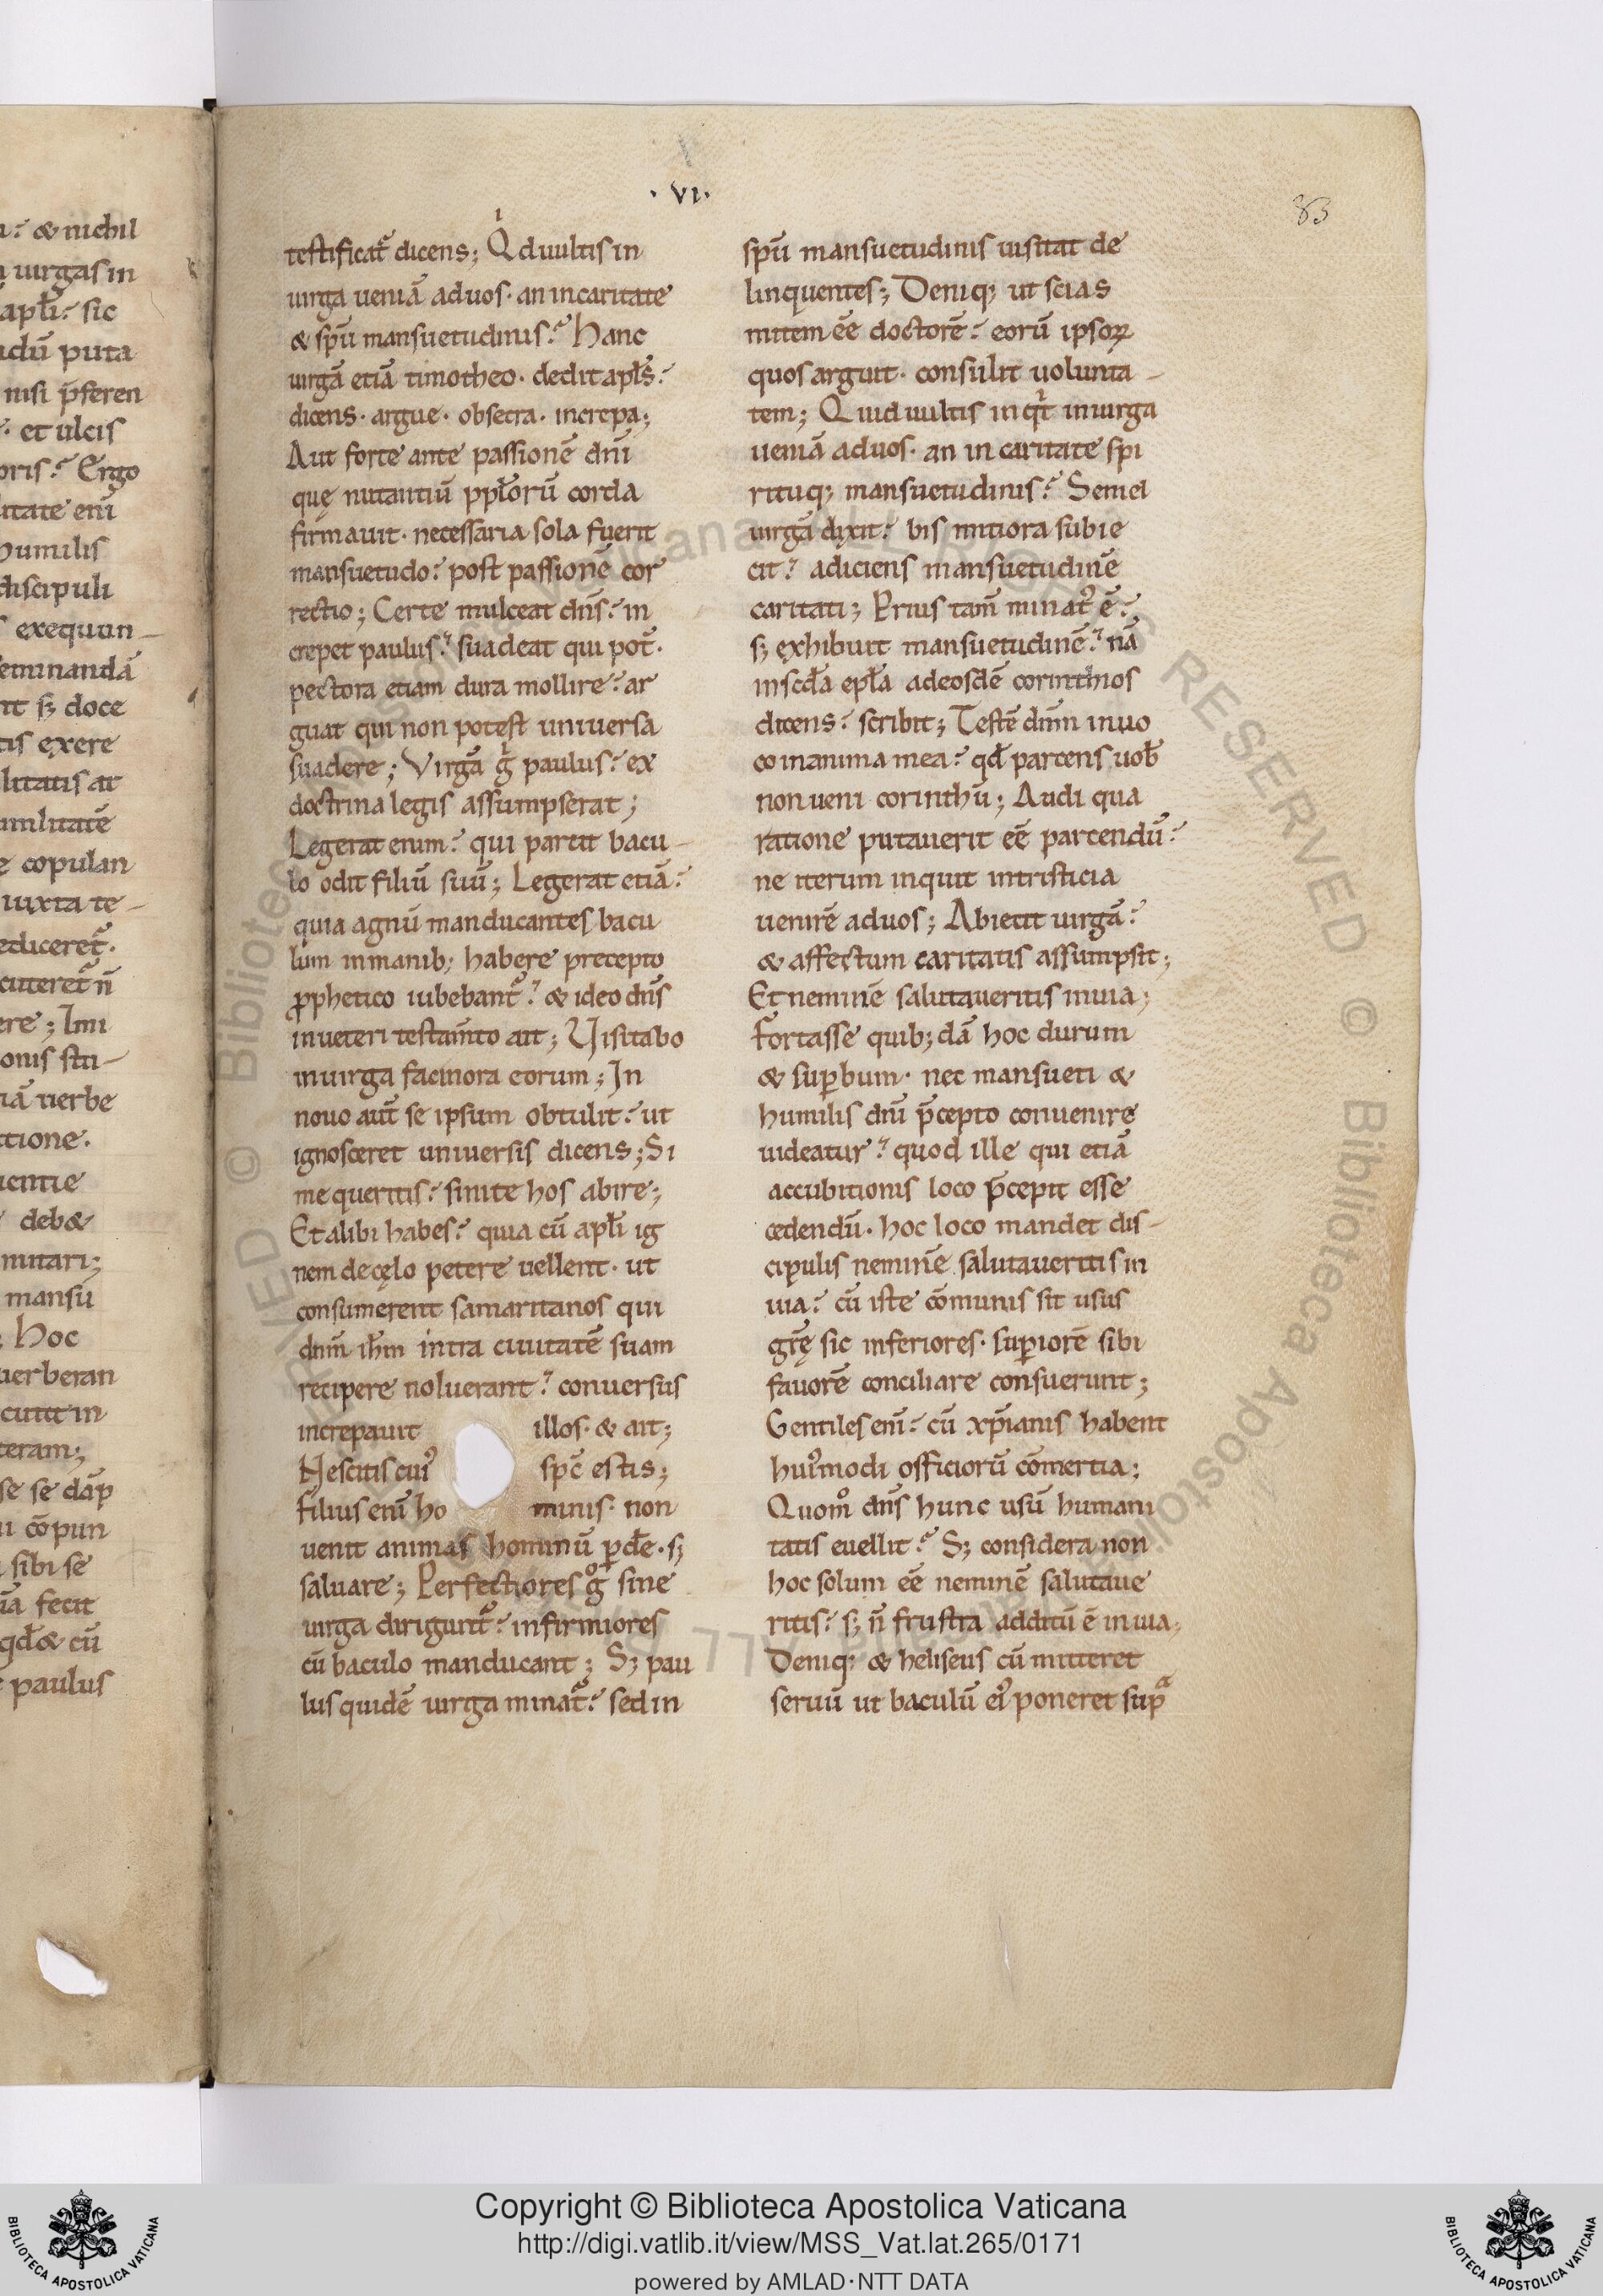 · vi ·
83
a? & nichil
uirgas in
apłi? sic
dū puta
nisi p̄feren
· et ulcis
oris? Ergo
litate eni̅
humilis
discipuli
exequun-
eminandā
nt s; doce
tis exere
litatis ar
umilitatē
e copulan
iuxta te-
ediceret᷑.
cuteret᷑ n̄
ere; Imi
onis sti-
iā uerbe
ctione.
uentie
deb&
mitari;
mansu
; hoc
uerberan
cutit in
teram;
se se dāp
u cōpun
sibi se
uā fecit
qd̄ & cū
paulus
testificat᷑ dicens; Qͥd uultis in
uirga ueniā ad uos · an in caritate
& sp̄u mansuetudinis? Hanc
uirgā etiā timotheo · dedit apłs?
dicens · argue · obsecra · increpa;
Aut forte ante passionē dn̄i
quę nutantiū ppłorū corda
firmauit · necessaria sola fuerit
mansuetudo? post passionē cor
rectio; Certe mulceat dn̄s? in
crepet paulus? suadeat qui pot᷑.
pectora etiam dura mollire? ar
guat qui non potest uniuersa
suadere; Virgā gͥ paulus? ex
doctrina legis assumpserat;
Legerat enim? qui parcit bacu-
lo odit filiū suū; Legerat etiā?
quia agnū manducantes bacu
lum in manib; habere precepto
ꝓphetico iubebant᷑? & ideo dn̄s
in ueteri testam̄to ait; Uisitabo
in uirga facinora eorum; In
nouo aut̄ se ipsum obtulit? ut
ignosceret uniuersis dicens; Si
me queritis? sinite hos abire;
Et alibi habes? quia cū apłi ig
nem de cęlo petere uellent · ut
consumerent samaritanos qui
dn̄m ih̄m intra ciuitatē suam
recipere noluerant? conuersus
increpauit illos · & ait;
Nescitis cuiꝰ sp̄c estis;
filius eni̅ ho minis · non
uenit animas hominū ꝑdē · s;
saluare; Perfectiores gͦ sine
uirga dirigunt᷑? infirmiores
cū baculo manducant; S; pau
lus quidē uirga minat᷑? sed in
sp̄u mansuetudinis uisitat de
linquentes; Deniq; ut scias
mitem ēē doctorē? eorū ipsoꝝ
quos arguit · consulit uolunta-
tem; Quid uultis inqͥt in uirga
ueniā ad uos · an in caritate spi
rituq; mansuetudinis? Semel
uirgā dixit? bis mitiora subie
cit? adiciens mansuetudinē
caritati; Prius tam̄ minatꝰ ē?
s; exhibuit mansuetudinē? nā
in scd̄a epła ad eosdē corinthios
dicens? scribit; Testē dn̄m inuo
co in anima mea? qd̄ parcens uob̄
non ueni corinthū; Audi qua
ratione putauerit ēē parcendū?
ne iterum inquit in tristicia
uenirē ad uos; Abiecit uirgā?
& affectum caritatis assumpsit;
Et neminē salutaueritis in uia;
Fortasse quib;dā hoc durum
& suꝑbum · nec mansueti &
humilis dn̄i p̄cepto conuenire
uideatur? quod ille qui etiā
accubitionis loco p̄cepit esse
cedendū · hoc loco mandet dis-
cipulis neminē salutaueritis in
uia? cū iste cōmunis sit usus
gr̄ę sic inferiores · suꝑiorē sibi
fauorē conciliare consuerunt;
Gentiles eni̅? cū xp̄ianis habent
huiꝰmodi officiorū cōmertia;
Quom̊ dn̄s hunc usū humani
tatis euellit? S; considera non
hoc solum ēē neminē salutaue
ritis? s; n̄ frustra additū ē in uia;
Deniq; & heliseus cū mitteret
seruū ut baculū eiꝰ poneret supᷓ
Copyright © Biblioteca Apostolica Vaticana
http://digi.vatlib.it/view/MSS_Vat.lat.265/0171
powered by AMLAD·NTT DATA
BIBLIOTECA APOSTOLICA VATICANA
BIBLIOTECA APOSTOLICA VATICANA